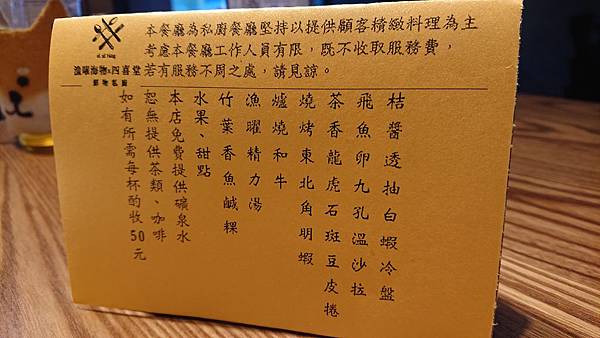 本餐廳為私廚餐廳堅持以提供顧客精緻料理為主
考慮本餐廳工作人員有限，既不收取服務費，
若有服務不周之處，請見諒。
漁曜海物x四喜堂
鮮物私廚
桔醬透抽白蝦冷盤
飛魚卵九孔溫沙拉
茶香龍虎石斑豆皮捲
燒烤東北角明蝦
爐燒和牛
漁曜精力湯
竹葉香魚鹹粿
水果、甜點
本店免費提供礦泉水
恕無提供茶類、咖啡
如有所需每杯酌收50元